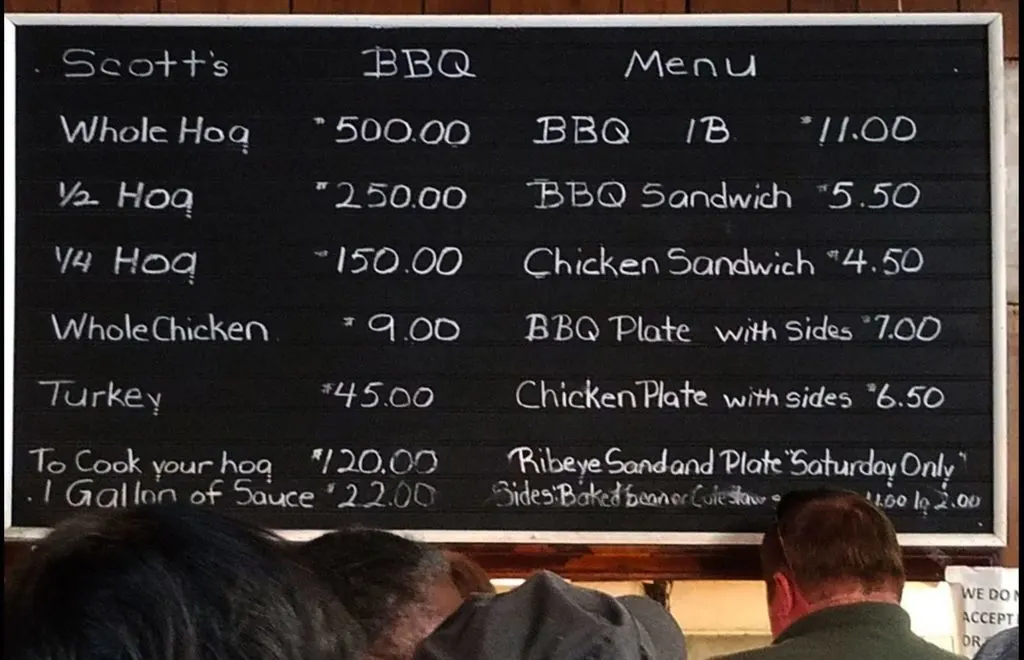 Scott's BBQ Menu
Whole Hog $500.00 BBQ 1B $11.00
1/2 Hog $250.00 BBQ Sandwich $5.50
1/4 Hog $150.00 Chicken Sandwich $4.50
Whole Chicken $9.00 BBQ Plate with Sides $7.00
Turkey $45.00 Chicken Plate with sides $6.50
To Cook your hog $120.00 Ribeye Sand and Plate "Saturday Only"
1 Gallon of Sauce $22.00 Sides: Baked bean or Coleslaw 2.00
WE DO
ACCEPT
OR